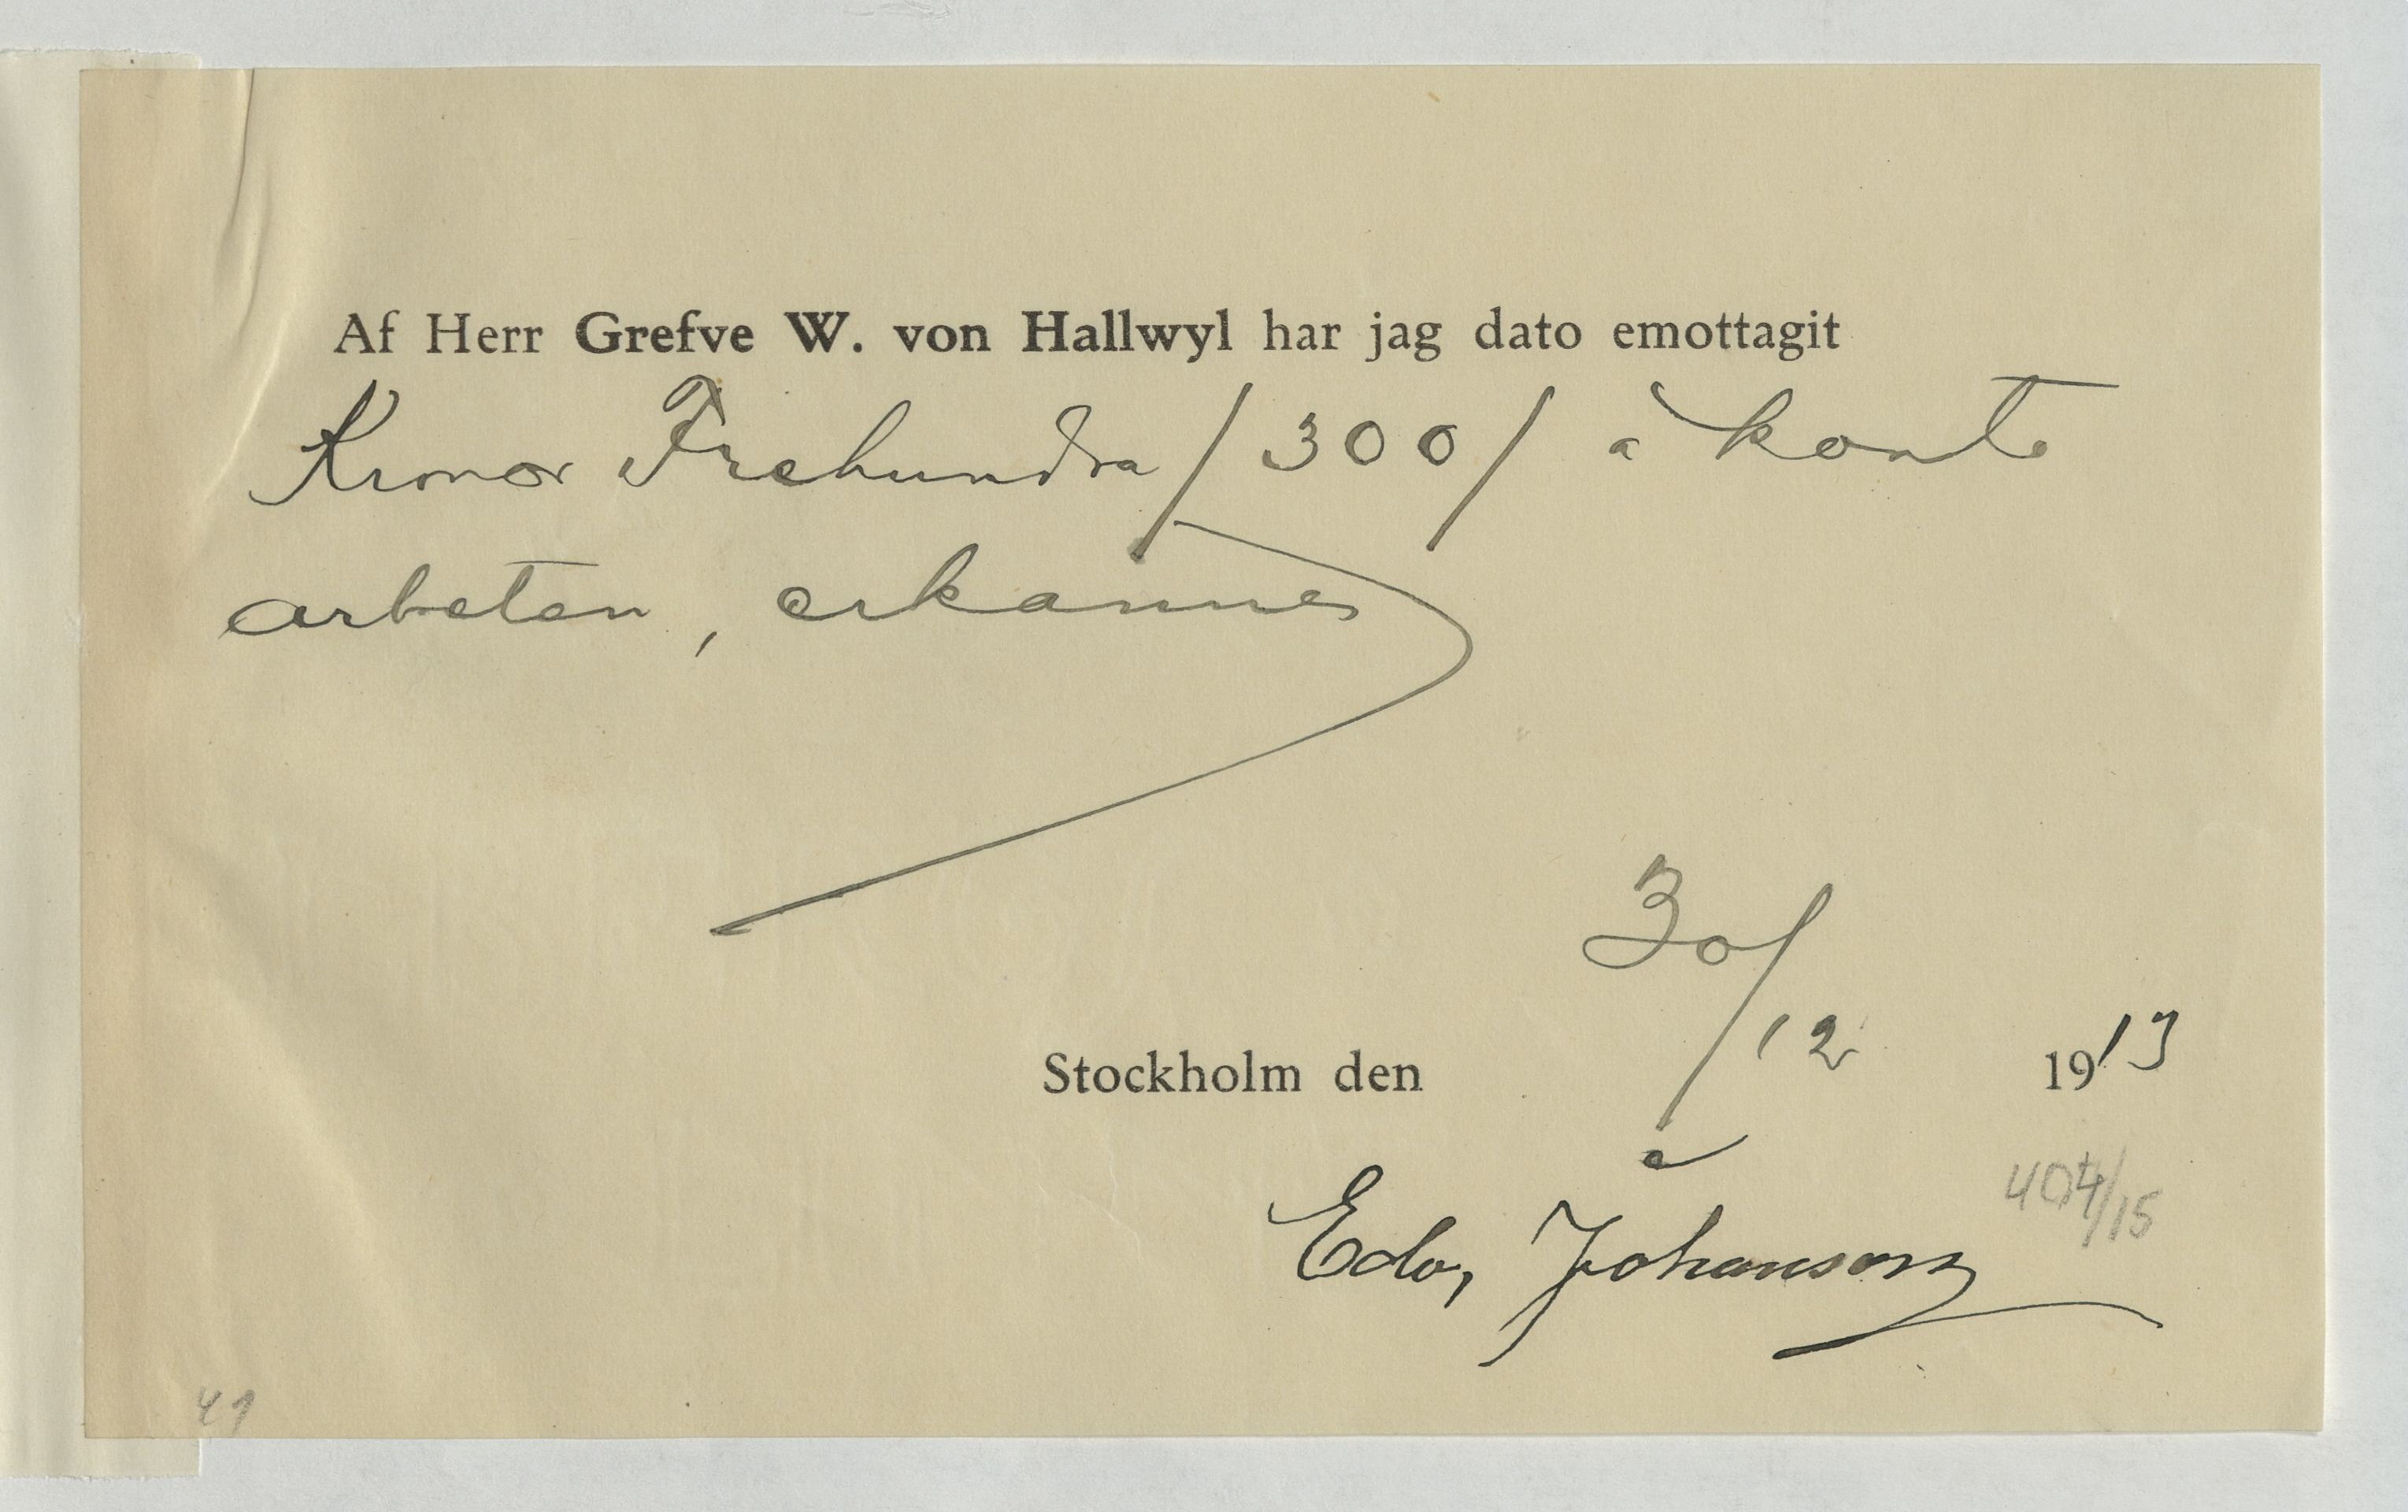 Af Herr Grefve W. von Hallwyl har jag dato emottagit
Kronor Trehundra /300/ à konto
arbeten, erkännes
30/12
Stockholm den 1913
Edv, Johanson
404/15
41